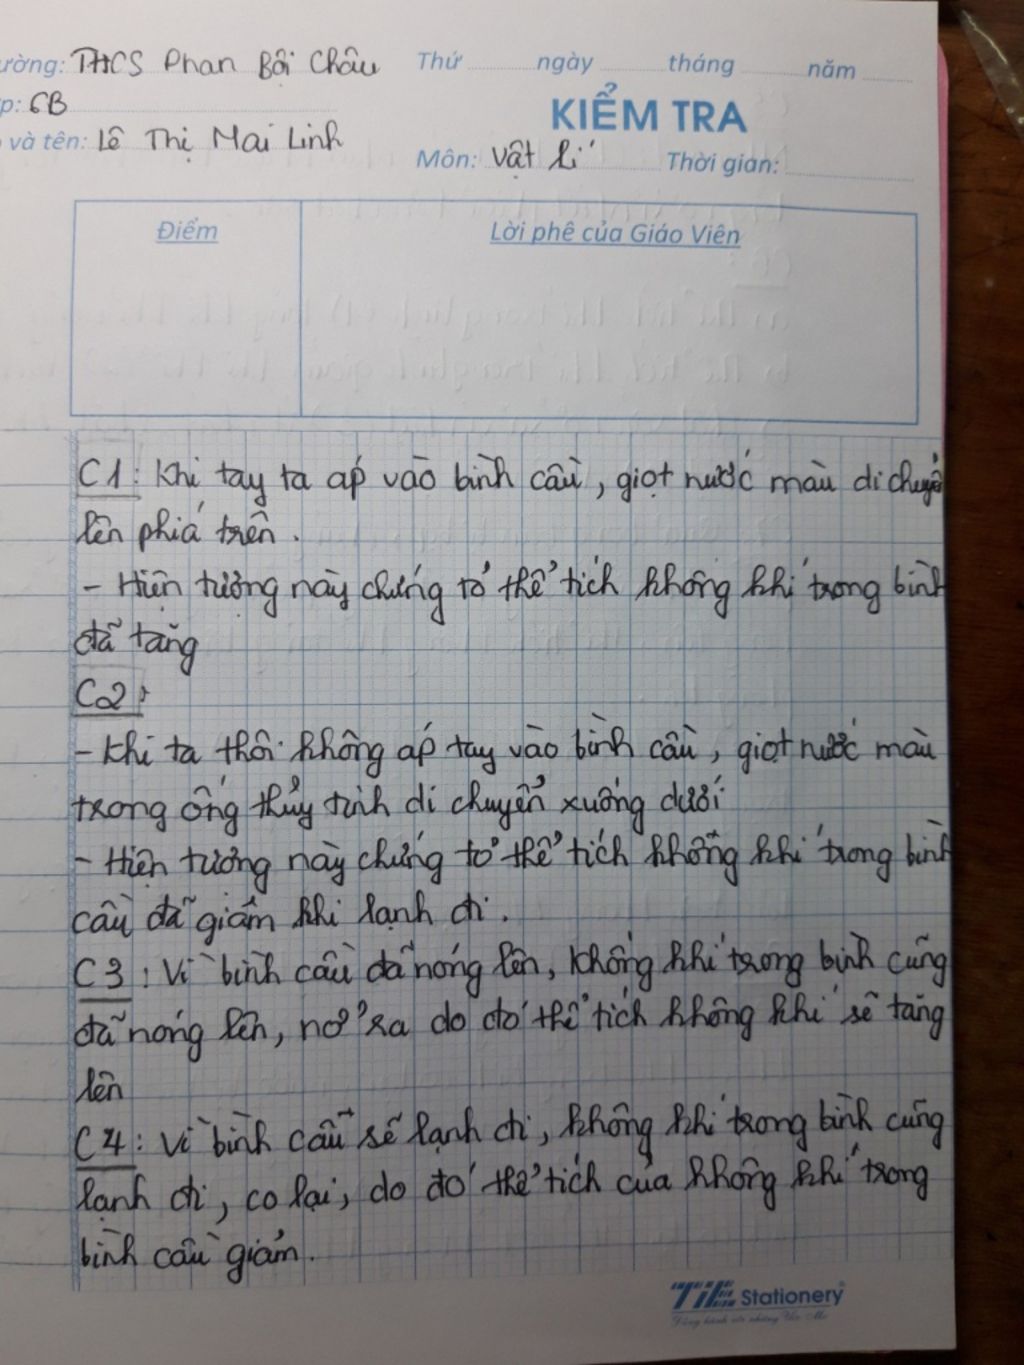 ường: THCS Phan Bội Châu Thứ ngày tháng năm
p: 6B
KIỂM TRA
và tên: Lê Thị Mai Linh
Môn: Vật lí Thời gian:
Điểm Lời phê của Giáo Viên
C1: Khi tay ta áp vào bình cầu, giọt nước màu di chuyển
lên phía trên.
- Hiện tượng này chứng tỏ thể tích không khí trong bình
đã tăng
C2:
- Khi ta thôi không áp tay vào bình cầu, giọt nước màu
trong ống thủy tinh di chuyển xuống dưới
- Hiện tượng này chứng tỏ thể tích không khí trong bình
cầu đã giảm khi lạnh đi.
C3: Vì bình cầu đã nóng lên, không khí trong bình cũng
đã nóng lên, nở ra do đó thể tích không khí sẽ tăng
lên
C4: Vì bình cầu sẽ lạnh đi, không khí trong bình cũng
lạnh đi, co lại, do đó thể tích của không khí trong
bình cầu giảm.
TiE Stationery